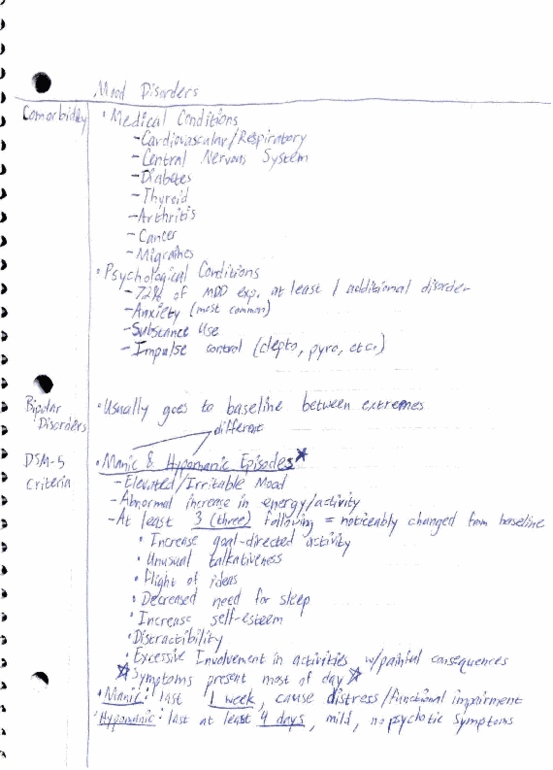 Mood Disorders
Comorbidity
• Medical Conditions
- Cardiovascular/Respiratory
- Central Nervous System
- Diabetes
- Thyroid
- Arthritis
- Cancer
- Migraines
• Psychological Conditions
- 72% of MDD exp. at least 1 additional disorder
- Anxiety (most common)
- Substance Use
- Impulse control (clepto, pyro, etc.)
Bipolar Disorders
• Usually goes to baseline between extremes
different
DSM-5 Criteria
• Manic & Hypomanic Episodes ☆
- Elevated/Irritable Mood
- Abnormal increase in energy/activity
- At least 3 (three) following = noticeably changed from baseline
• Increase goal-directed activity
• Unusual talkativeness
• Flight of ideas
• Decreased need for sleep
• Increase self-esteem
• Distractibility
• Excessive Involvement in activities w/painful consequences
☆ Symptoms present most of day ☆
• Manic: last 1 week, cause distress/functional impairment
• Hypomanic: last at least 4 days, mild, no psychotic symptoms